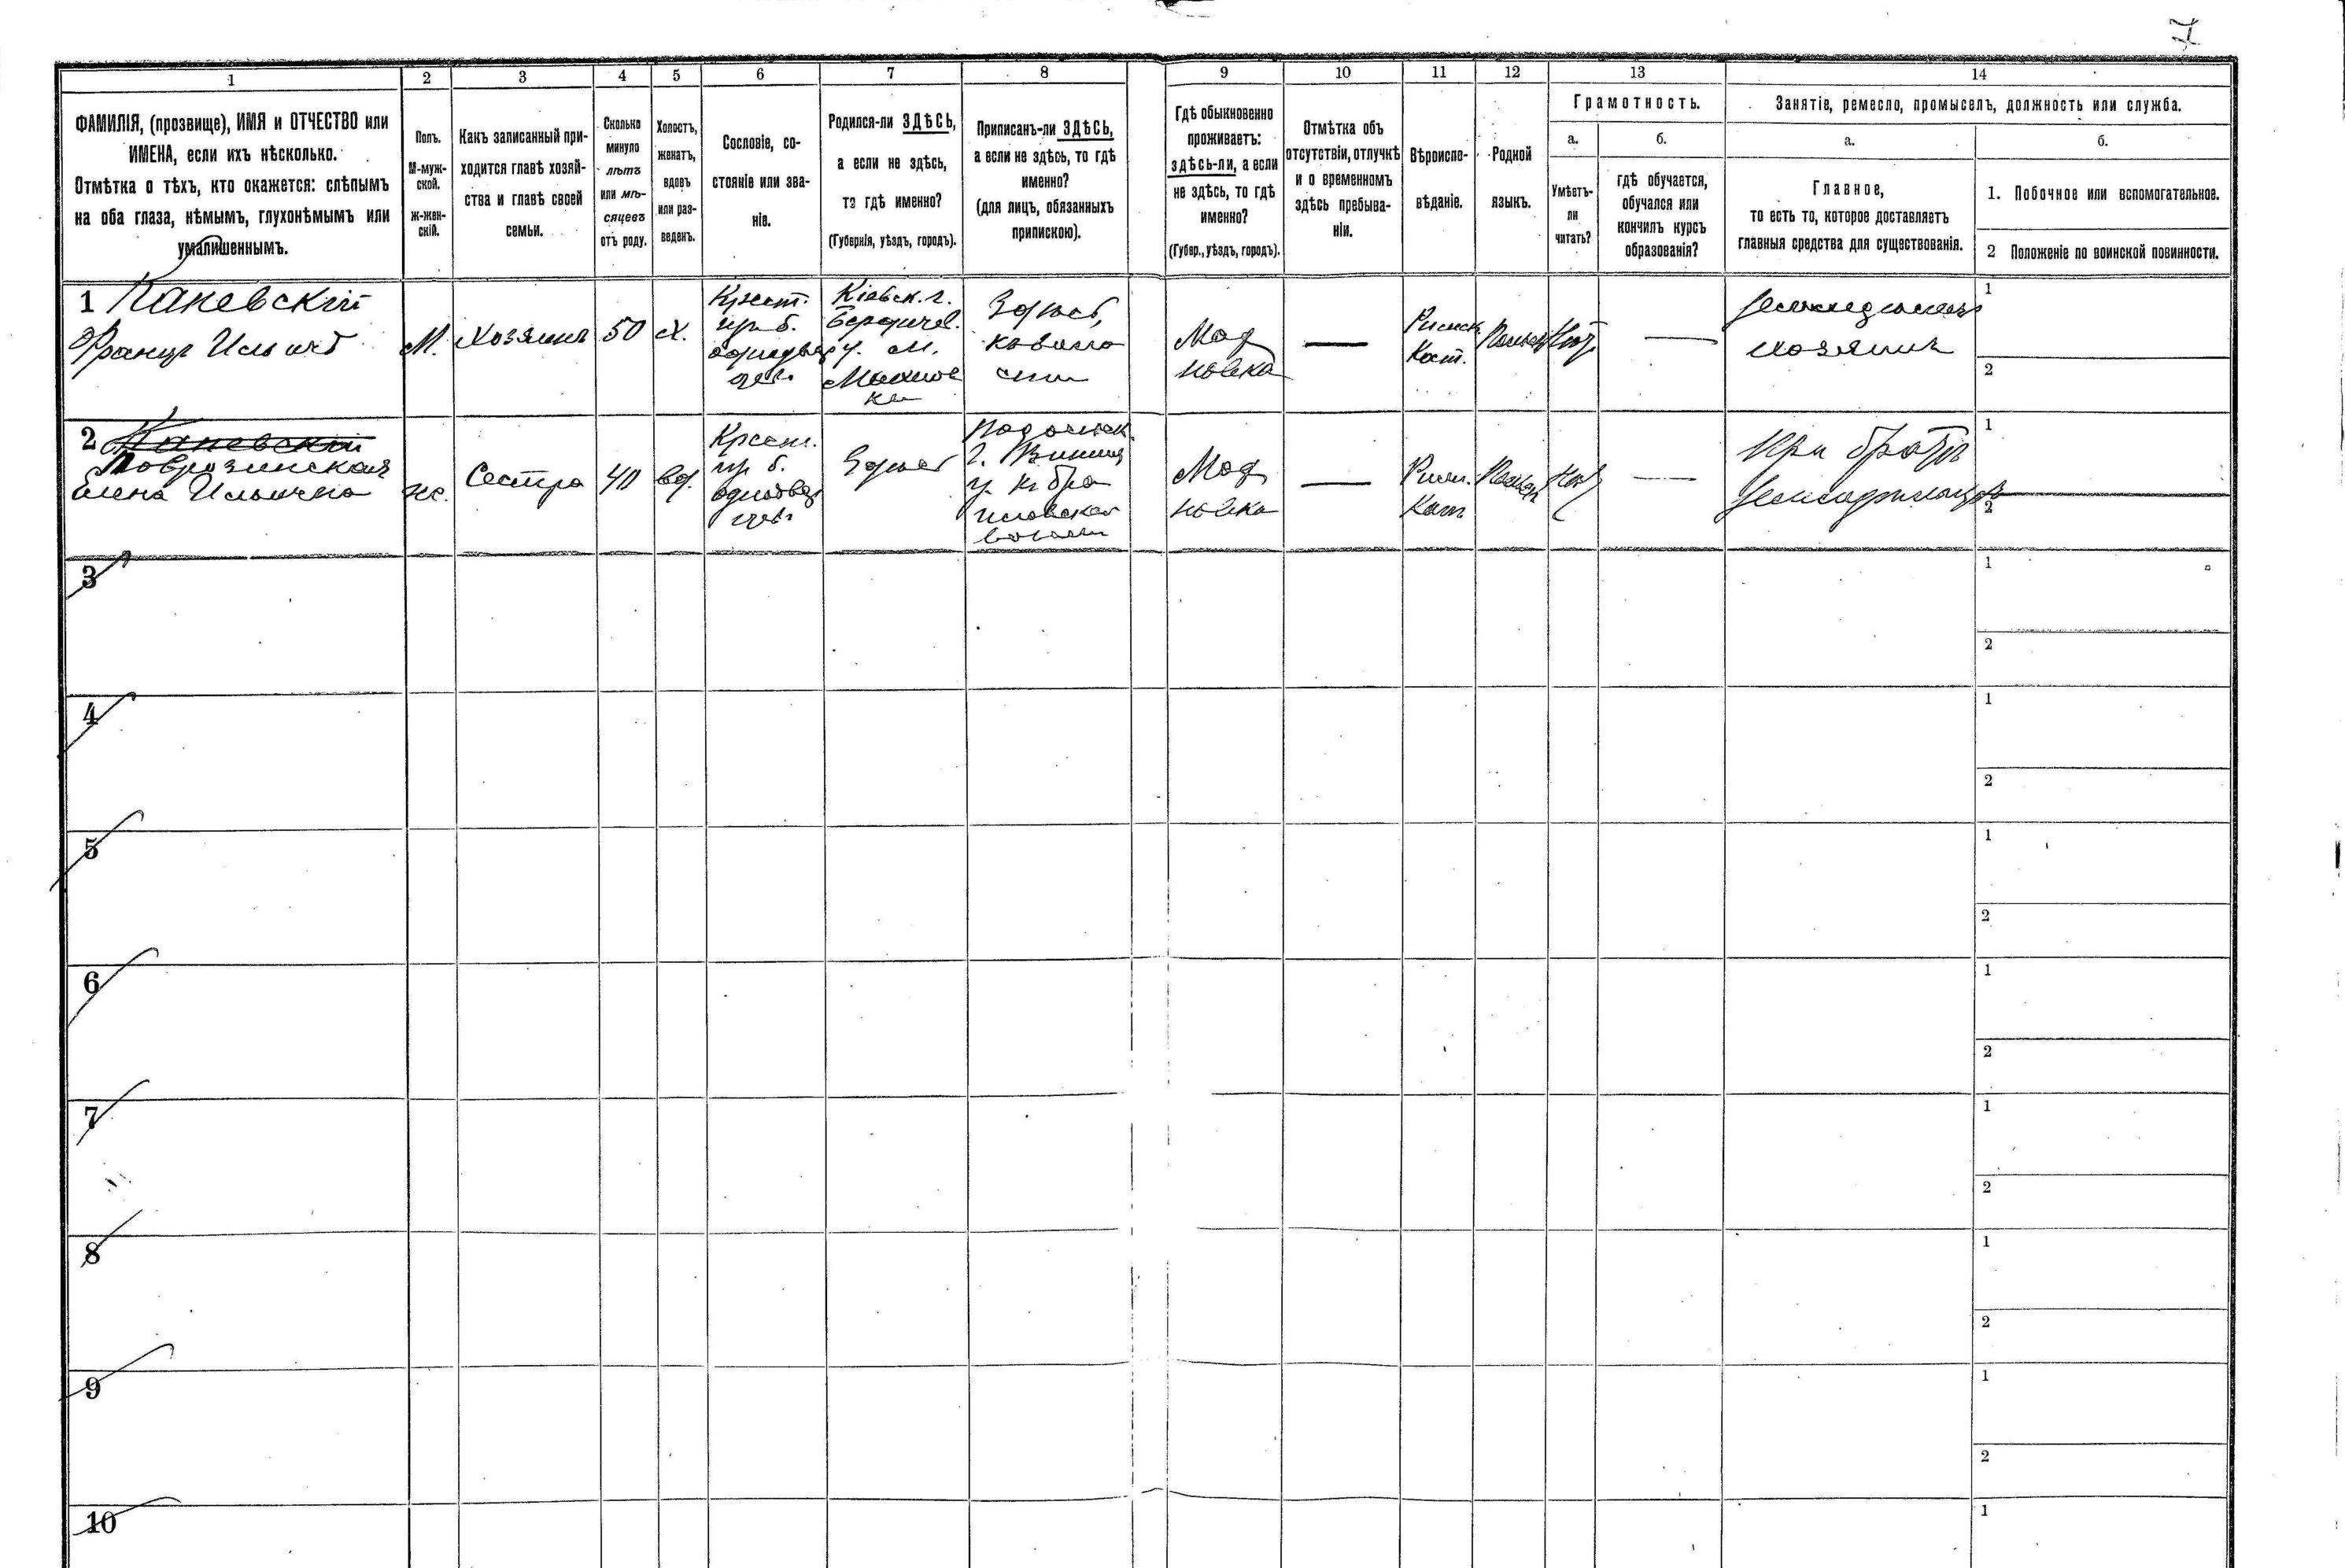 7
1
2
3
4
5
6
7
8
9
10
11
12
13
14
ФАМИЛІЯ, (прозвище), ИМЯ и ОТЧЕСТВО или
ИМЕНА, если ихъ нѣсколько.
Отмѣтка о тѣхъ, кто окажется: слѣпымъ
на оба глаза, нѣмымъ, глухонѣмымъ или
умалишеннымъ.
Полъ.
М-муж-
ской.
ж-жен-
скій.
Какъ записанный при-
ходится главѣ хозяй-
ства и главѣ своей
семьи.
Сколько
минуло
лѣтъ
или мѣ-
сяцевъ
отъ роду.
Холостъ,
женатъ,
вдовъ
или раз-
веденъ.
Сословіе, со-
стояніе или зва-
ніе.
Родился-ли ЗДѢСЬ,
а если не здѣсь,
то гдѣ именно?
(Губернія, уѣздъ, городъ).
Приписанъ-ли ЗДѢСЬ,
а если не здѣсь, то гдѣ
именно?
(для лицъ, обязанныхъ
припискою).
Гдѣ обыкновенно
проживаетъ:
здѣсь-ли, а если
не здѣсь, то гдѣ
именно?
(Губер., уѣздъ, городъ).
Отмѣтка объ
отсутствіи, отлучкѣ
и о временномъ
здѣсь пребыва-
ніи.
Вѣроиспо-
вѣданіе.
Родной
языкъ.
Грамотность.
а.
Умѣетъ-
ли
читать?
б.
гдѣ обучается,
обучался или
кончилъ курсъ
образованія?
Занятіе, ремесло, промыселъ, должность или служба.
а.
Главное,
то есть то, которое доставляетъ
главныя средства для существованія.
б.
1. Побочное или вспомогательное.
2 Положеніе по воинской повинности.
1 Каневскій
Францъ Ильичъ
М.
Хозяинъ
50
х.
Крест.
Кіевск. г.
Бердичев.
у. м.
Махнов
ка
Здѣсь,
Мах
новка
Римск.
Кат.
Нѣт
хозяинъ
1
2
2 Каневскій
Елена Ильична
ж.
Сестра
40
вд.
Крест.
Здѣсь
Подольск.
г. Винниц
у.
Мах
новка
Рим.
Кат
При братѣ
1
2
3
1
2
4
1
2
5
1
2
6
1
2
7
1
2
8
1
2
9
1
2
10
1